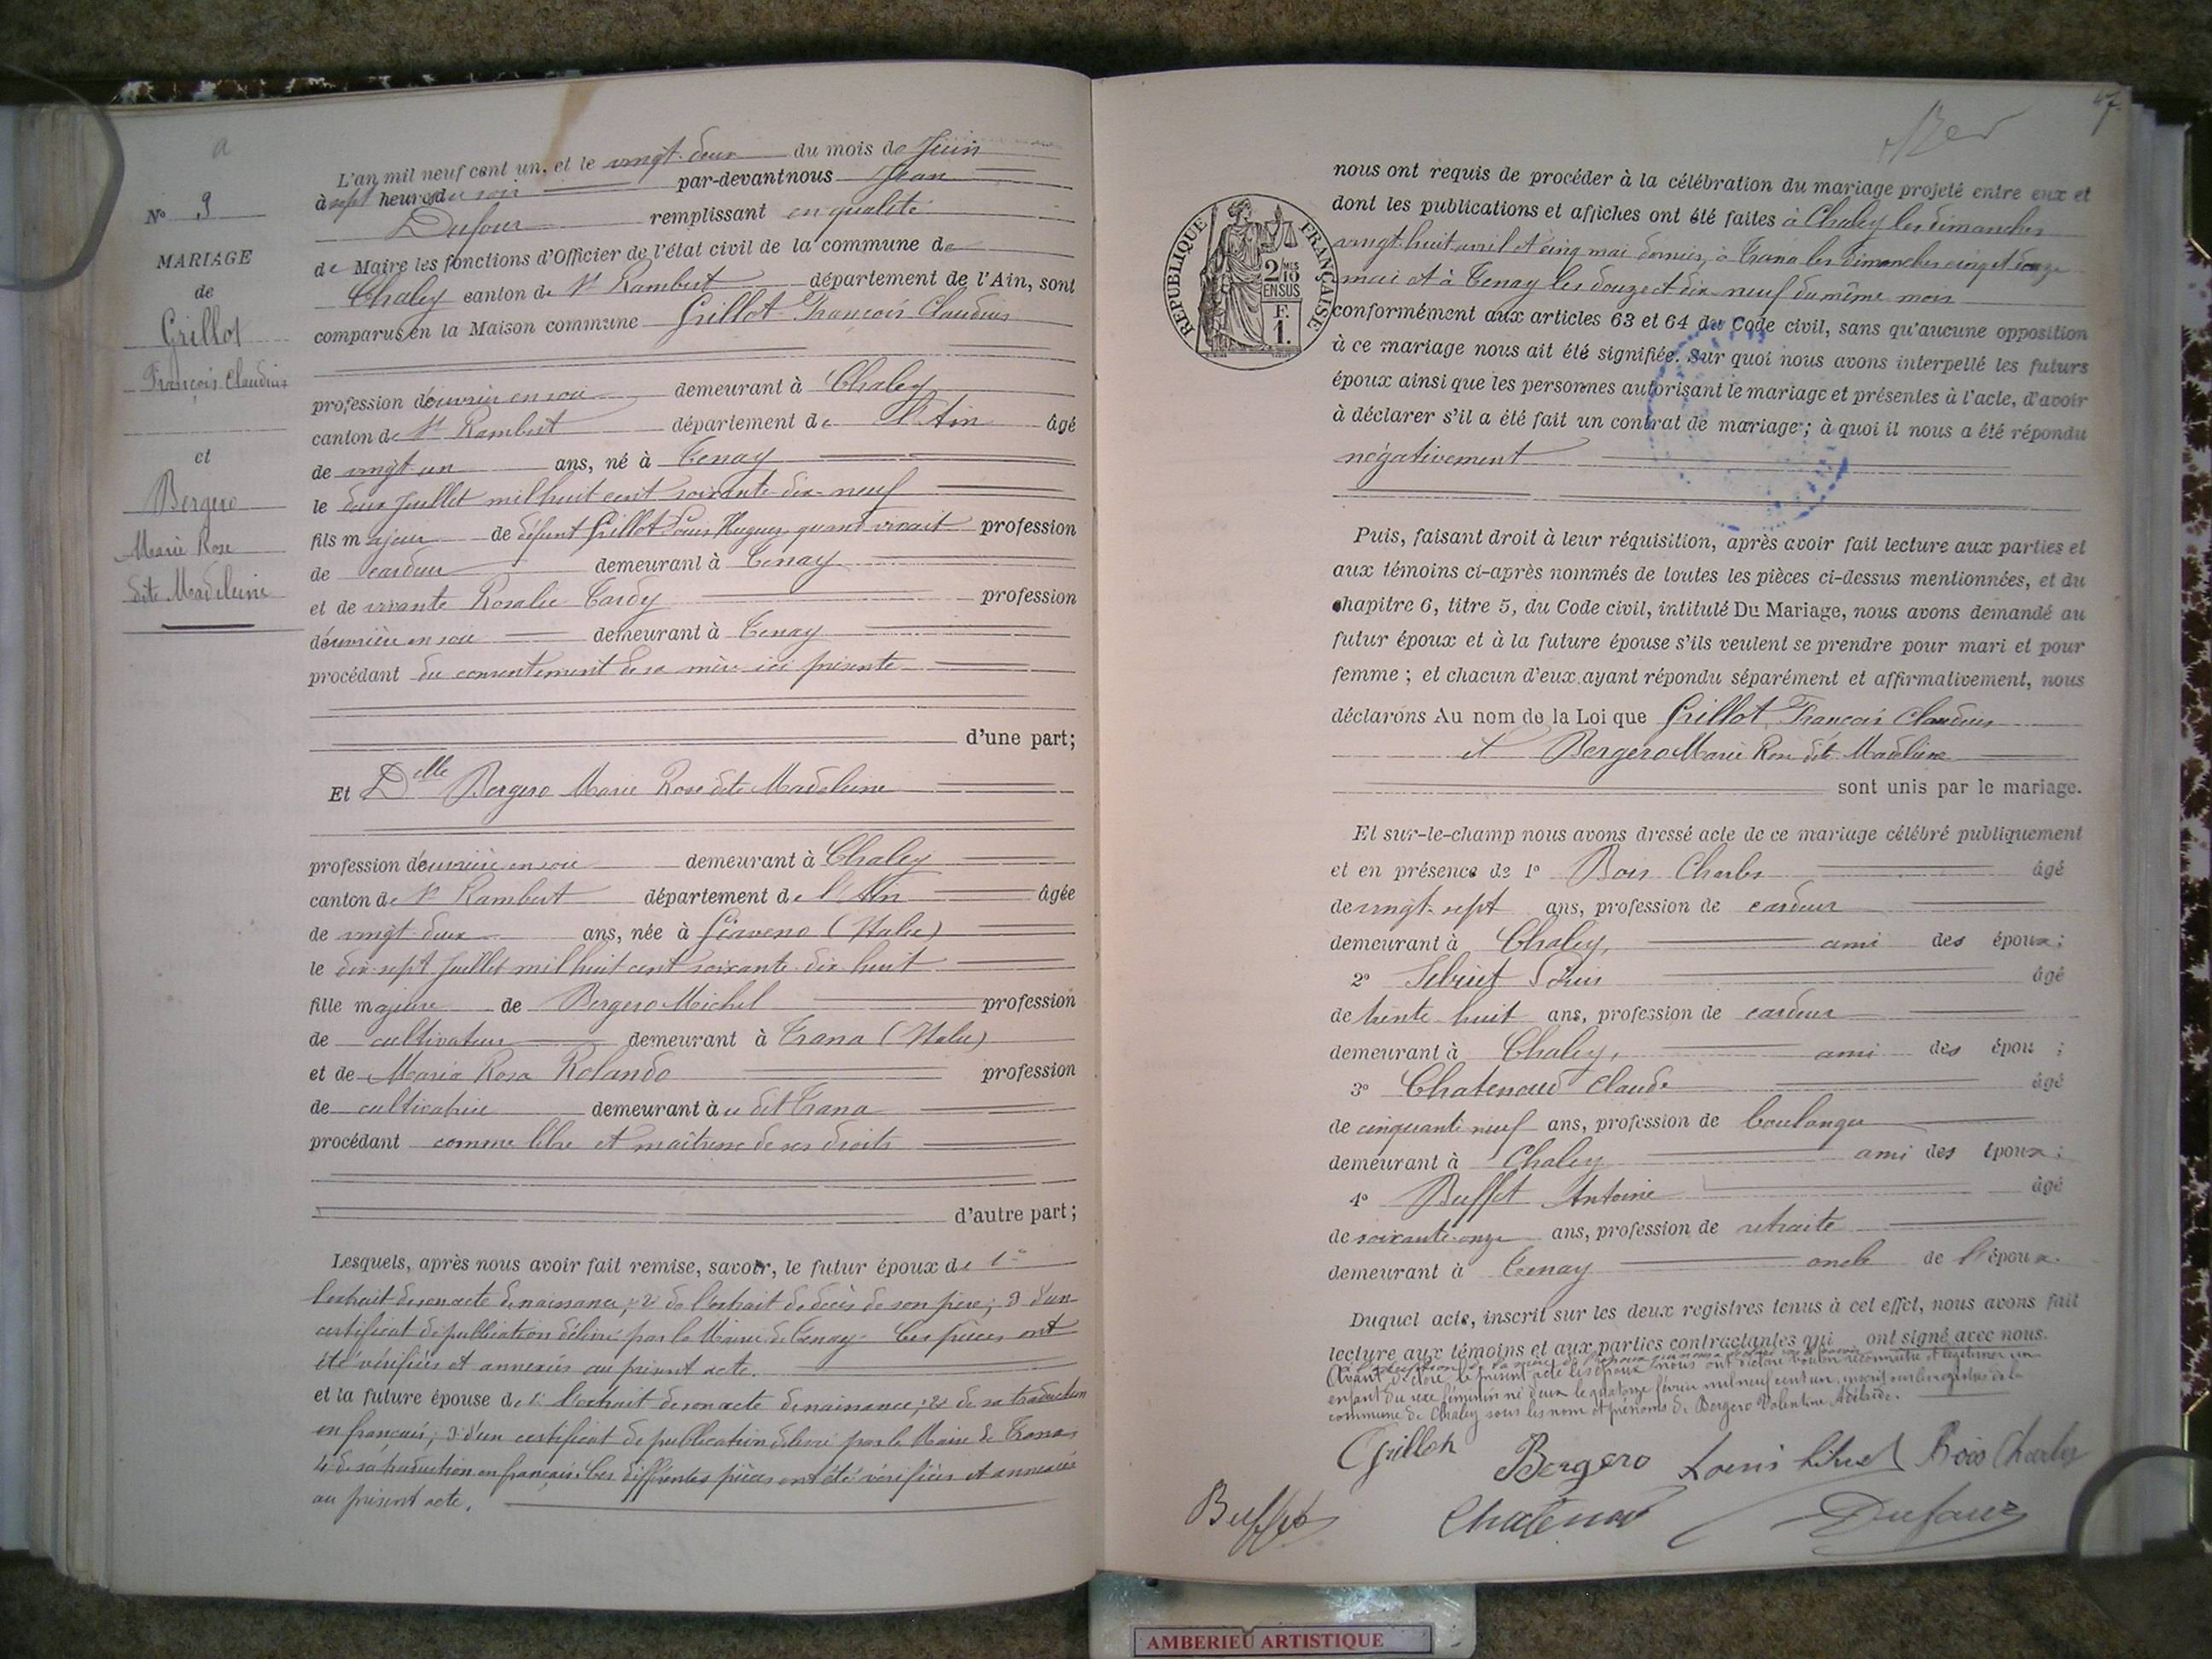 a
N° 9
MARIAGE
de
Grillot
François Claudius
et
Bergero
Marie Rose
dite Madeleine
L'an mil neuf cent un, et le vingt-deux du mois de Juin
à sept heures du soir par-devant nous Jean
Dufour remplissant en qualité
de Maire les fonctions d'Officier de l'état civil de la commune de
Chaley canton de St Rambert département de l'Ain, sont
comparus en la Maison commune Grillot François Claudius
profession d'ouvrier en soie demeurant à Chaley
canton de St Rambert département de l'Ain âgé
de vingt un ans, né à Tenay
le deux Juillet mil huit cent soixante-dix-neuf
fils majeur de défunt Grillot Louis Hugues quand vivait profession
de cardeur demeurant à Tenay
et de vivante Rosalie Tardy profession
d'ouvrière en soie demeurant à Tenay
procédant du consentement de sa mère ici présente
d'une part;
Et Delle Bergero Marie Rose dite Madeleine
profession d'ouvrière en soie demeurant à Chaley
canton de St Rambert département de l'Ain âgée
de vingt deux ans, née à Giaveno (Italie)
le dix-sept Juillet mil huit cent soixante dix huit
fille majeure de Bergero Michel profession
de cultivateur demeurant à Trana (Italie)
et de Maria Rosa Rolando profession
de cultivatrice demeurant à u dit Trana
procédant comme libre et maîtresse de ses droits
d'autre part;
Lesquels, après nous avoir fait remise, savoir, le futur époux de 1°
l'extrait de son acte de naissance; 2° de l'extrait de décès de son père; 3° d'un
certificat de publication délivré par le Maire de Tenay. Ces pièces ont
été vérifiées et annexées au présent acte.
et la future épouse de 1° l'extrait de son acte de naissance; 2° de sa traduction
en français; 3° d'un certificat de publication délivré par le Maire de Trana;
4° de sa traduction en français. Ces différentes pièces ont été vérifiées et annexées
au présent acte.
47
RÉPUBLIQUE FRANÇAISE
2/10 MES
EN SUS
F.
1.
nous ont requis de procéder à la célébration du mariage projeté entre eux et
dont les publications et affiches ont été faites à Chaley les dimanches
vingt-huit avril et cinq mai dernier, à Trana les dimanches cinq et douze
mai et à Tenay les douze et dix-neuf du même mois
conformément aux articles 63 et 64 du Code civil, sans qu'aucune opposition
à ce mariage nous ait été signifiée. Sur quoi nous avons interpellé les futurs
époux ainsi que les personnes autorisant le mariage et présentes à l'acte, d'avoir
à déclarer s'il a été fait un contrat de mariage; à quoi il nous a été répondu
négativement
Puis, faisant droit à leur réquisition, après avoir fait lecture aux parties et
aux témoins ci-après nommés de toutes les pièces ci-dessus mentionnées, et du
chapitre 6, titre 5, du Code civil, intitulé Du Mariage, nous avons demandé au
futur époux et à la future épouse s'ils veulent se prendre pour mari et pour
femme; et chacun d'eux ayant répondu séparément et affirmativement, nous
déclarons Au nom de la Loi que Grillot François Claudius
et Bergero Marie Rose dite Madeleine
sont unis par le mariage.
Et sur-le-champ nous avons dressé acte de ce mariage célébré publiquement
et en présence de 1° Bois Charles âgé
de vingt-sept ans, profession de cardeur
demeurant à Chaley, ami des époux;
2° Louis âgé
de trente huit ans, profession de cardeur
demeurant à Chaley, ami des épou ;
3° Chatenoud Claude âgé
de cinquante neuf ans, profession de boulanger
demeurant à Chaley ami des époux;
4° Buffet Antoine âgé
de soixante-onze ans, profession de retraité
demeurant à Tenay oncle de l'époux.
Duquel acte, inscrit sur les deux registres tenus à cet effet, nous avons fait
lecture aux témoins et aux parties contractantes qui ont signé avec nous.
à l'exception de la mère de l'époux
Avant de clore le présent acte les époux nous ont déclaré vouloir reconnaître et légitimer un
enfant du sexe féminin né d'eux le quatorze février mil neuf cent un, inscrit sur les registres de la
commune de Chaley sous les nom et prénoms de Bergero Valentine Adélaïde.
Grillot Bergero Louis Bois Charles
Buffet Chatenoud Dufour
AMBERIEU ARTISTIQUE